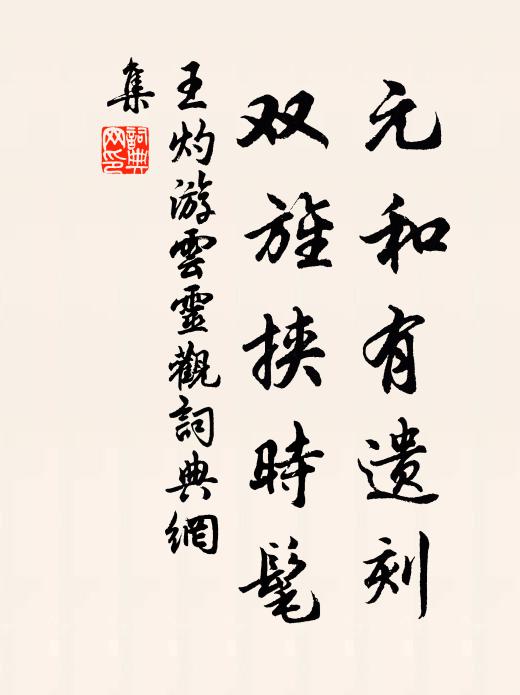 元和有遗刻
双旌挟時髦
王灼游雲靈觀詞典網
集
詞典
网印